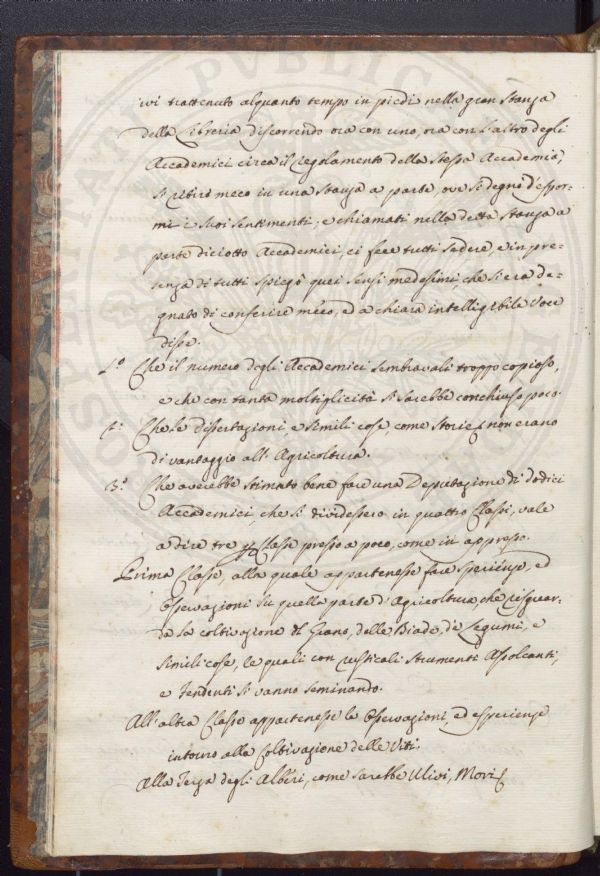 ivi trattenuto alquanto tempo in piedi nella gran Stanza
della Libreria discorrendo ora con uno, ora con l'altro degli
Accademici circa il regolamento della stessa Accademia,
si ritirò meco in una Stanza a parte, ove si degnò d'espor-
mi i suoi sentimenti; e chiamati nella detta Stanza a
parte diciotto Accademici, ci fece tutti sedere, e in pre-
senza di tutti spiegò quei sensi medesimi, che si era de-
gnato di conferire meco, ed a chiara intelligibile voce
disse.
1.o Che il numero degli Accademici sembravali troppo copioso,
e che con tanta moltiplicità si sarebbe conchiuso poco.
Che le dissertazioni, e simili cose, come storie non erano
di vantaggio all'Agricoltura.
3.o Che averebbe stimato bene fare una Deputazione di dodici
Accademici, che si dividessero in quattro Classi, vale
a dire tre per Classe presso a poco, come in appresso.
Prima Classe, alla quale appartenesse fare sperienze, ed
Osservazioni su quella parte d'Agricoltura, che risguar-
da la coltivazione di Grano, delle Biade, di Legumi, e
simili cose, le quali con rusticali strumenti Assolcanti,
e Fendenti si vanno seminando.
All'altra Classe appartenesse le Osservazioni, ed esperienze
intorno alla Coltivazione delle Viti.
Alla Terza degli Alberi, come sarebbe Ulivi, Mori